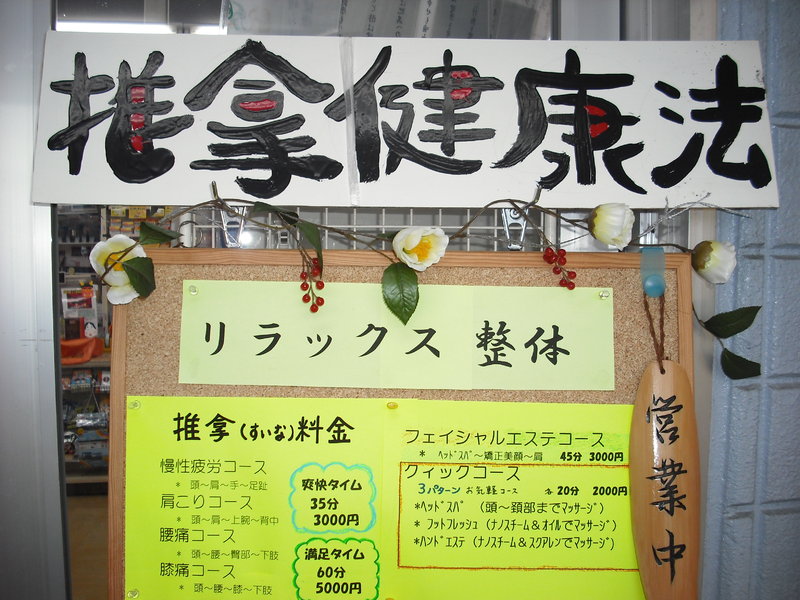 推拿健康法
リラックス 整体
推拿(すいな)料金
慢性疲労コース
* 頭～肩～手～足趾
肩こりコース
* 頭～肩～上腕～背中
腰痛コース
* 頭～腰～臀部～下肢
膝痛コース
* 頭～腰～膝～下肢
爽快タイム
35分
3000円
満足タイム
60分
5000円
フェイシャルエステコース
* ヘッドスパ～矯正美顔～肩 45分 3000円
クィックコース
3パターン お気軽コース 各20分 2000円
*ヘッドスパ (頭～頚部までマッサージ)
* フットフレッシュ (ナノスチーム&オイルでマッサージ)
*ハンドエステ (ナノスチーム&スクアレンでマッサージ)
営業中